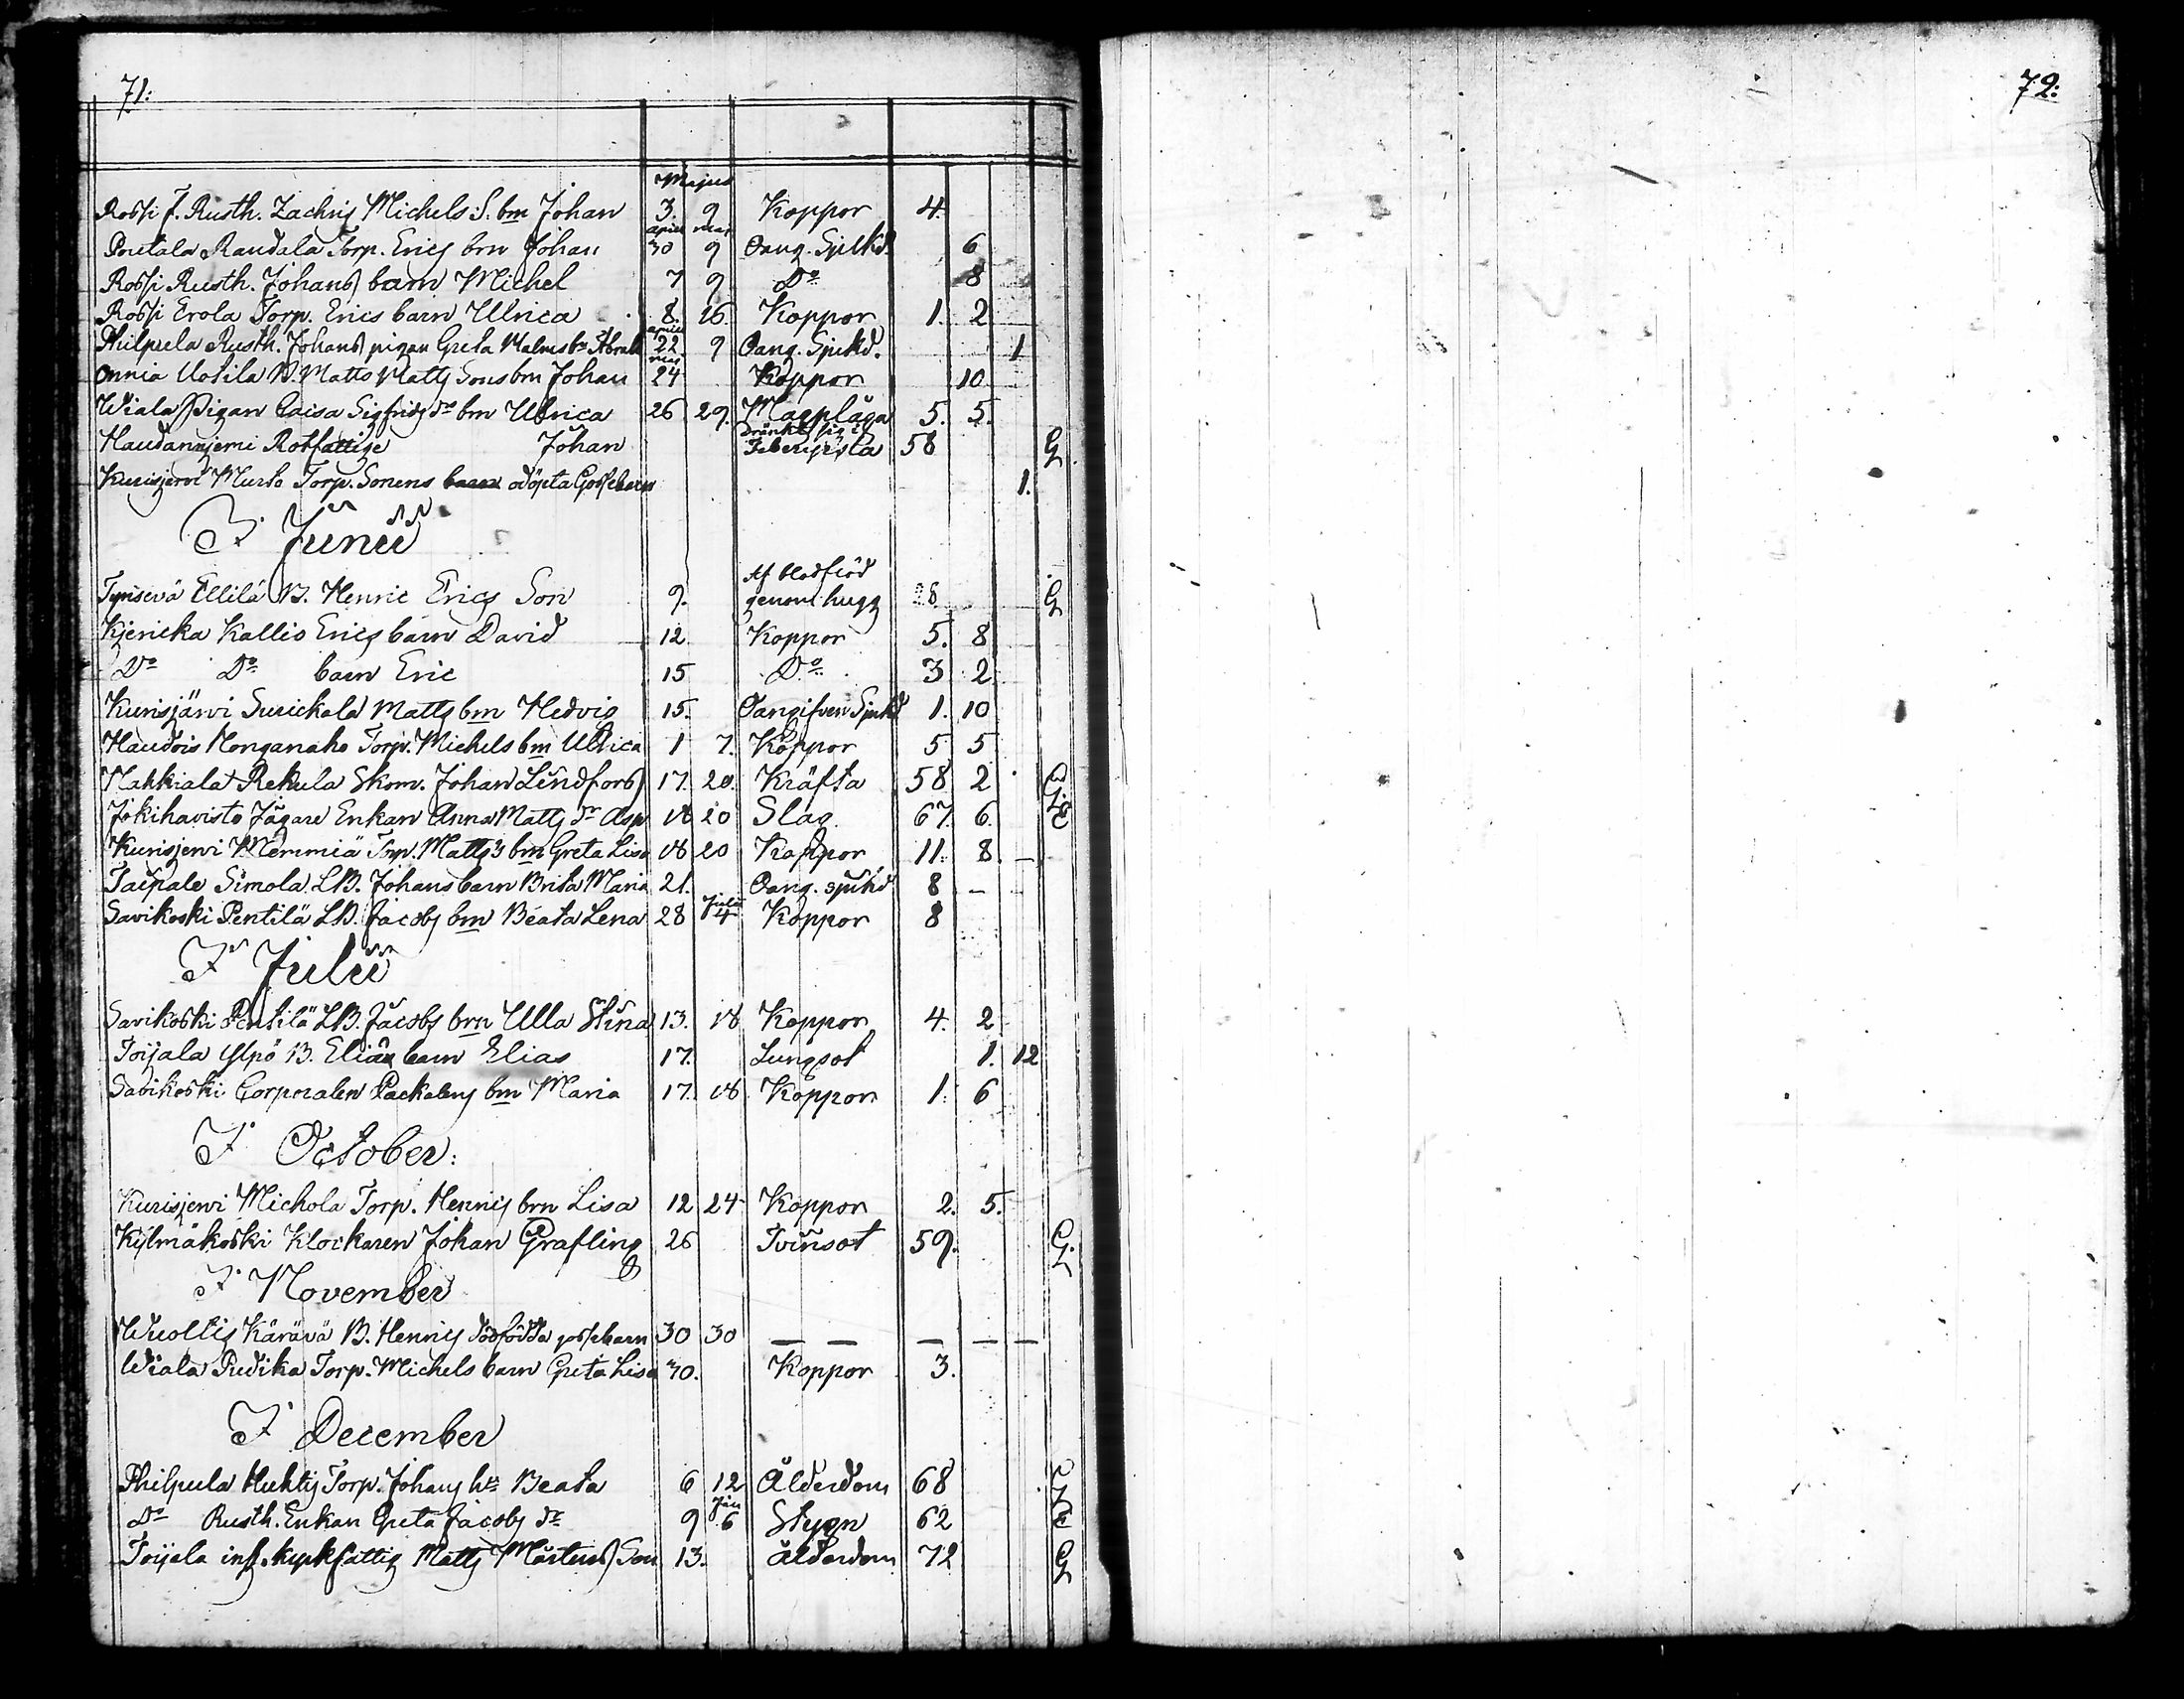 71:
72:
Majus
Rossi f. Rusth. Zachris Michels S. brn Johan 3. 9 Koppor 4.
Poutala Raudala Torp. Erics brn Johan april 30 maj 9 Oang. Sjukd. 6
Rossi Rusth. Johans barn Michel 7 9 Do 8
Rossi Erola Torp. Erics barn Ulrica 8. 16. Koppor 1. 2
Philpula Rusth. Johans pigan Greta Malms bn Abrah april 22 9 Oang. Sjukd. 1
Onnia Uotila B. Matts Matts Sons brn Johan maj 24 Koppor 10
Wiala Pigan Caisa Sigfrids dr brn Ulrica 26 29. Magplåga 5. 5.
Haudanjemi Rotfattige Johan dränkt sig i 58 G
Kurisjervi Murto Torp. Sonens barn odöpta Gossebarn 1.
I Junii
Tyrisevä Ellilä B. Henric Erics Son 9. Af blodflöd genom hugg 28 G
Kjericka Kallio Erics barn David 12 Koppor 5. 8
Do Do barn Eric 15 Do 3 2
Kurisjärvi Surickala Matts brn Hedvig 15. Oangifven Sjukd 1. 10
Haudois Monganaho Torp. Michels brn Ulrica 1 7. Koppor 5 5
Makkiala Rekula Skom. Johan Lindfors 17. 20. Kräfta 58 2 G
Jokihavisto Jägare Enkan Anna Matts dr Asp 18 20 Slag 67. 6. E
Kurisjervi Memmiä Torp. Matts's brn Greta Lisa 18 20 Koppor 11. 8. –
Taipale Simola LB. Johans barn Brita Maria 21. Oang. sjukd 8 –
Savikoski Pentilä LB. Jacobs brn Beata Lena 28 Julii 4 Koppor 8
I Julii
Savikoski Pentilä LB. Jacobs brn Ulla Stina 13. 18 Koppor 4. 2
Toijala Ylpö B. Elias barn Elias 17. Lungsot 1. 12
Savikoski Corporalen Packalens brn Maria 17. 18 Koppor 1. 6
I October:
Kurisjervi Michola Torp. Henrics brn Lisa 12 24 Koppor 2. 5.
Kylmäkoski Klockaren Johan Grafling 26 Tvinsot 59. G.
I November
Wuoltis Kärävä B. Henrics dödfödda gossebarn 30 30 — — — — —
Wiala Pudika Torp. Michels barn Greta Lisa 30. Koppor 3.
I December
Philpula Huhtis Torp. Johans hu Beata 6 12 Ålderdom 68
Do Rusth. Enkan Greta Jacobs dr 9 Jan 6 Stygn 62 E
Toijala inh. kyrkfattig Matts Mårtens Son 13. ålderdom 72 G